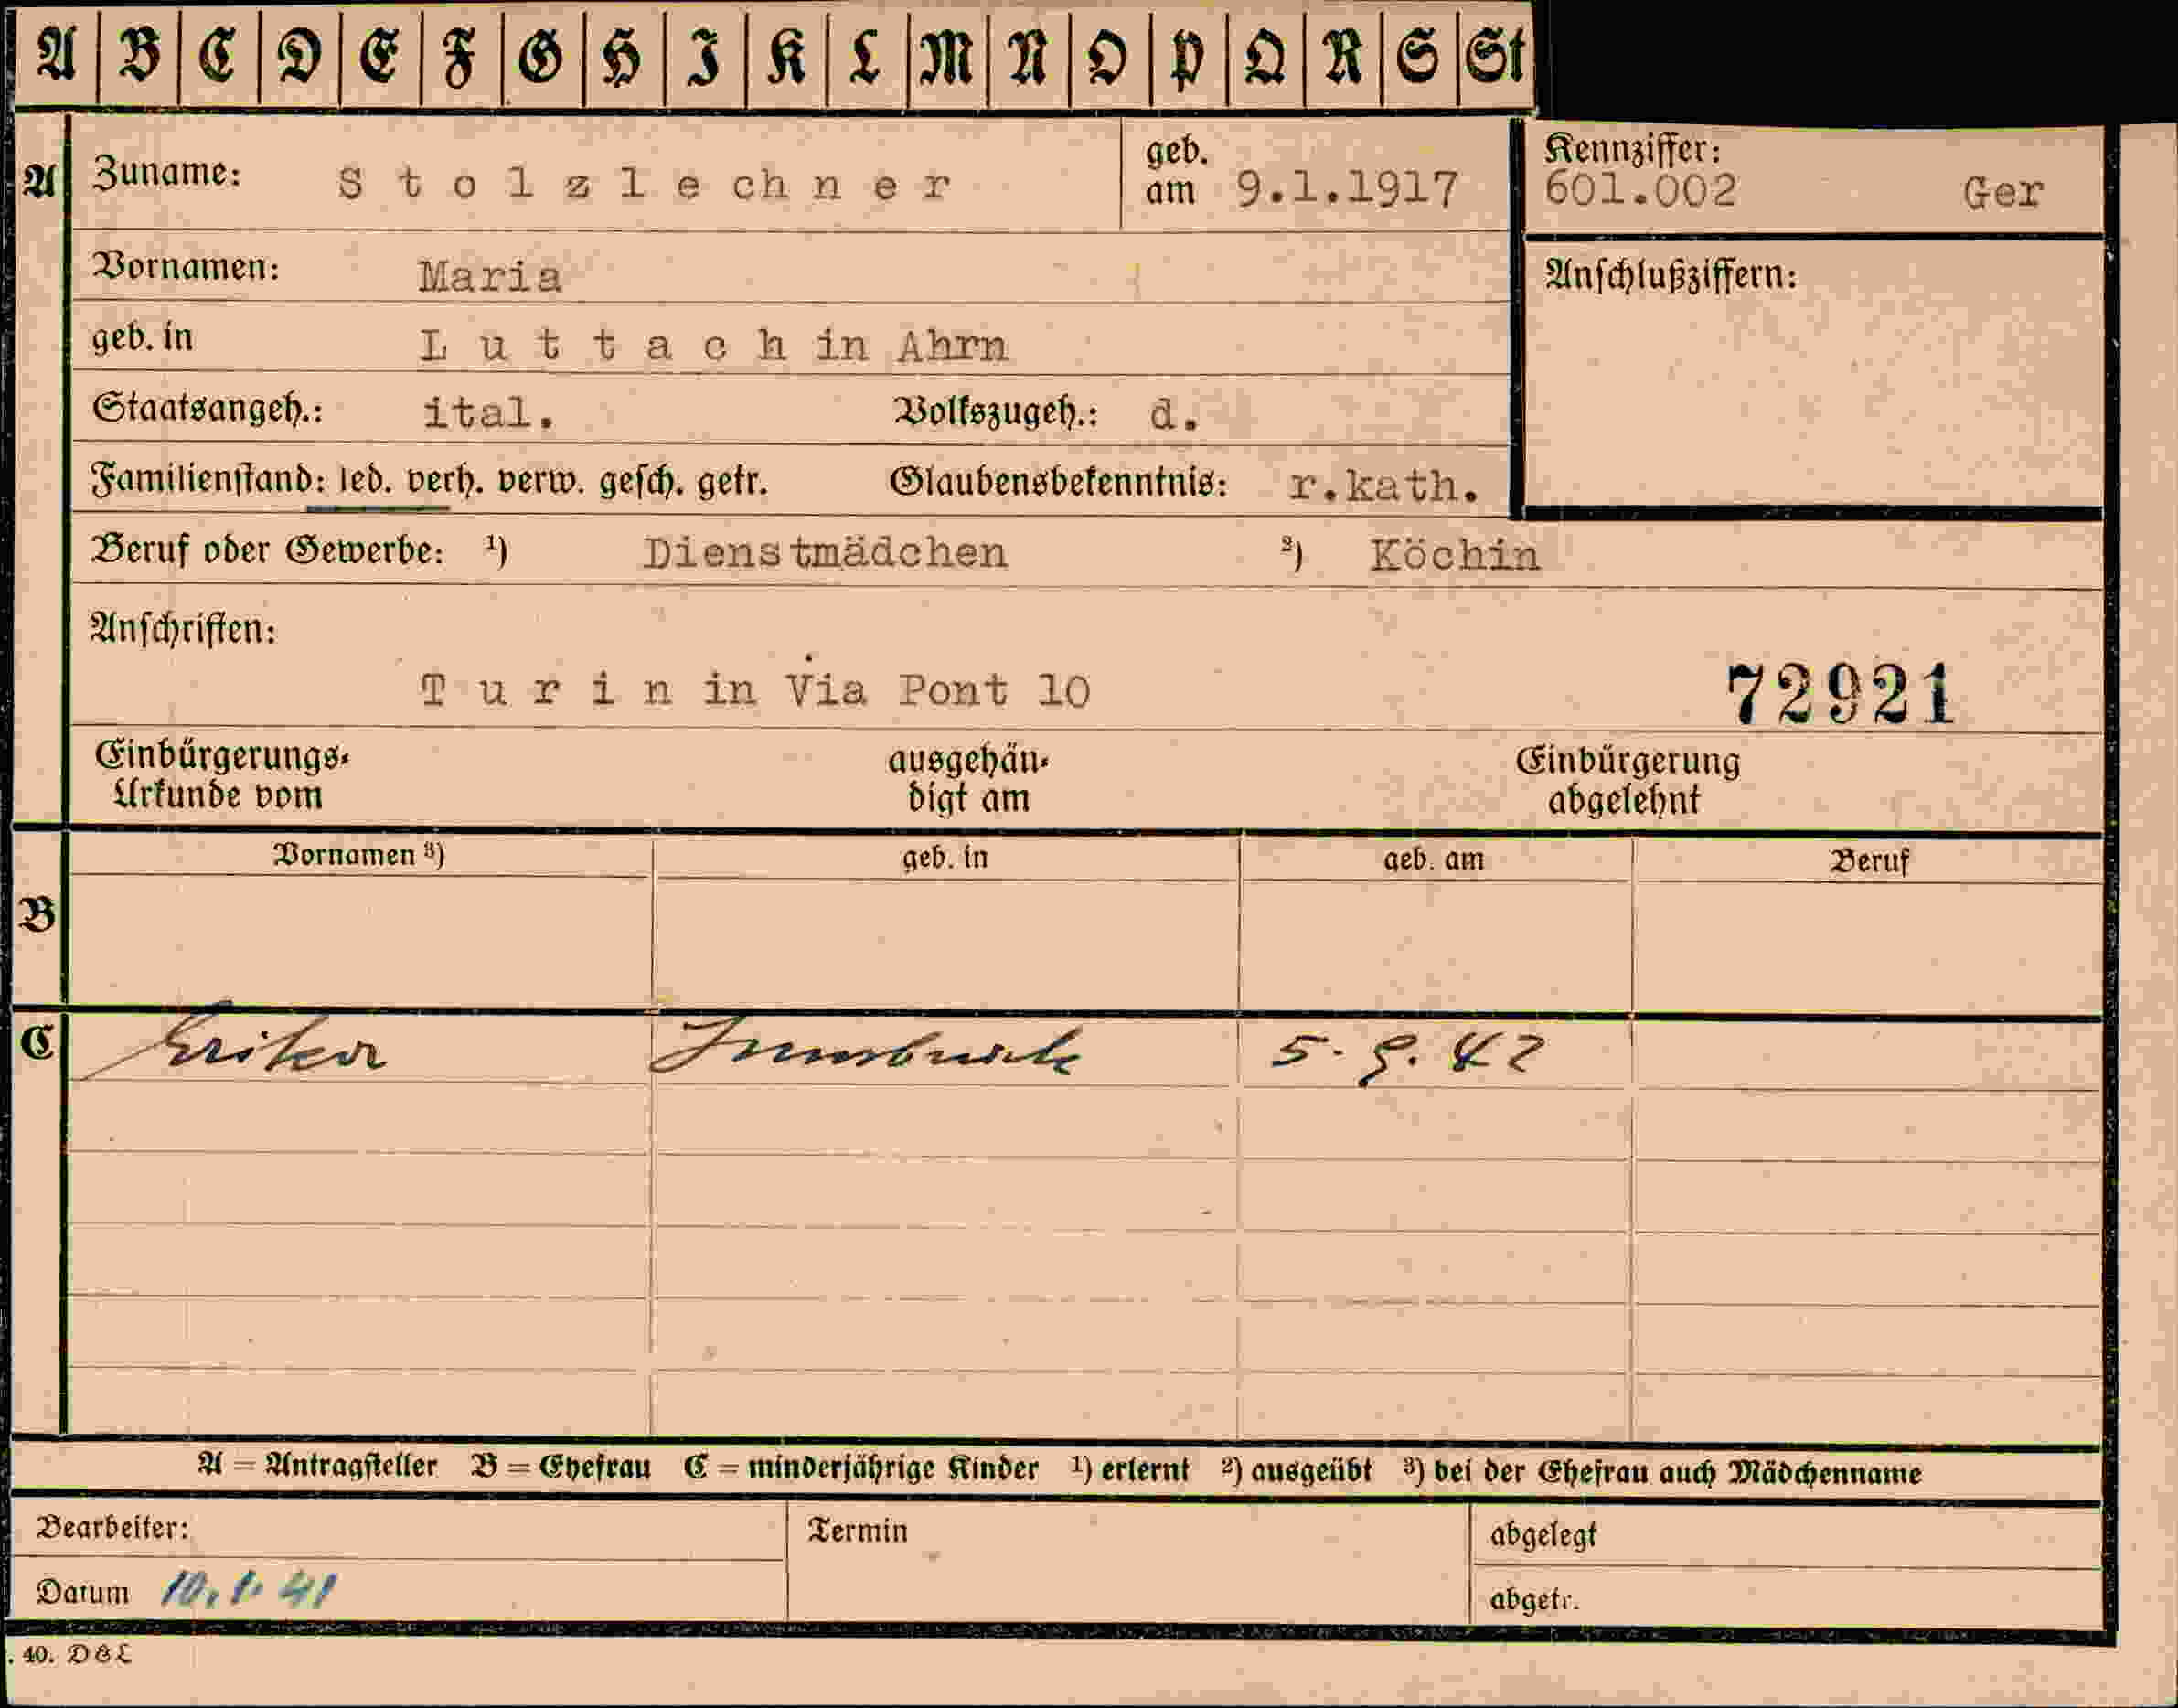 A B C D E F G H I K L M N O P Q R S St
A Zuname: Stolzlechner geb. am 9.1.1917 Kennziffer: 601.002 Ger
Vornamen: Maria Anschlußziffern:
geb. in Luttach in Ahrn
Staatsangeh.: ital. Volkszugeh.: d.
Familienstand: led. verh. verw. gesch. getr. Glaubensbekenntnis: r.kath.
Beruf oder Gewerbe: ¹) Dienstmädchen ²) Köchin
Anschriften:
Turin in Via Pont 10 72921
Einbürgerungs- ausgehän- Einbürgerung
Urkunde vom digt am abgelehnt
Vornamen ³) geb. in geb. am Beruf
B
C Erika Innsbruck 5. 9. 42
A = Antragsteller B = Ehefrau C = minderjährige Kinder ¹) erlernt ²) ausgeübt ³) bei der Ehefrau auch Mädchenname
Bearbeiter: Termin abgelegt
Datum 10. 1. 41 abgetr.
. 40. D&L